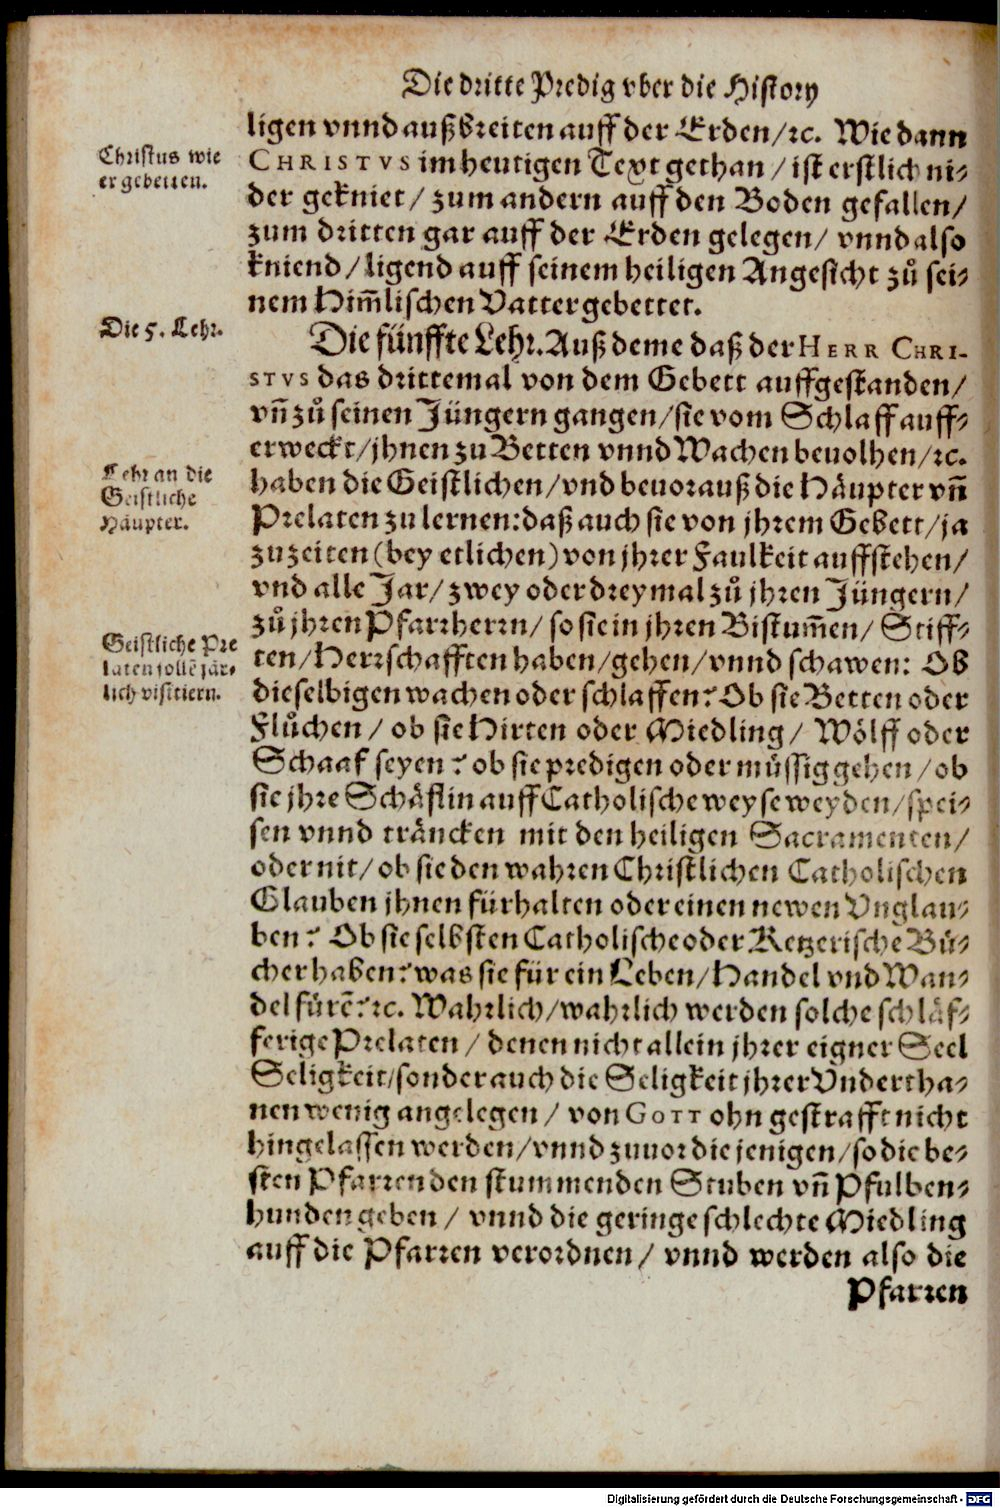 Die dritte Predig vber die History
ligen vnnd außbreiten auff der Erden/ꝛc. Wie dann
Christus wie
er gebetten.
CHRISTVS im heutigen Text gethan / ist erstlich ni⸗
der gekniet / zum andern auff den Boden gefallen /
zum dritten gar auff der Erden gelegen / vnnd also
kniend / ligend auff seinem heiligen Angesicht zů sei⸗
nem Him̃lischen Vatter gebettet.
Die 5. Lehr.
Die fünffte Lehr. Auß deme daß der HERR CHRI-
STVS das drittemal von dem Gebett auffgestanden /
vñ zů seinen Jüngern gangen / sie vom Schlaff auff⸗
erweckt / jhnen zu Betten vnnd Wachen beuolhen/ꝛc.
Lehr an die
Geistliche
Häupter.
haben die Geistlichen / vnd beuorauß die Häupter vñ
Prelaten zu lernen: daß auch sie von jhrem Gebett / ja
zu zeiten (bey etlichen) von jhrer Faulkeit auffstehen /
vnd alle Jar / zwey oder drey mal zů jhren Jüngern /
zů jhren Pfarrherrn / so sie in jhren Bistum̃en / Stiff⸗
Geistliche Pre
laten sollẽ jär⸗
lich visitiern.
ten / Herrschafften haben / gehen / vnnd schawen: Ob
dieselbigen wachen oder schlaffen? Ob sie Betten oder
Flůchen / ob sie Hirten oder Miedling / Wölff oder
Schaaf seyen? ob sie predigen oder müssig gehen / ob
sie jhre Schäflin auff Catholische weyse weyden / spei⸗
sen vnnd träncken mit den heiligen Sacramenten /
oder nit / ob sie den wahren Christlichen Catholischen
Glauben jhnen fürhalten oder einen newen Vnglau⸗
ben? Ob sie selbsten Catholische oder Ketzerische Bů⸗
cher haben? was sie für ein Leben / Handel vnd Wan⸗
del fürẽ? ꝛc. Wahrlich / wahrlich werden solche schläf⸗
ferige Prelaten / denen nicht allein jhrer eigner Seel
Seligkeit / sonder auch die Seligkeit jhrer Vndertha⸗
nen wenig angelegen / von GOTT ohn gestrafft nicht
hingelassen werden / vnnd zuuor die jenigen / so die be⸗
sten Pfarren den stummenden Stuben vñ Pfulben⸗
hunden geben / vnnd die geringe schlechte Miedling
auff die Pfarren verordnen / vnnd werden also die
Pfarren
Digitalisierung gefördert durch die Deutsche Forschungsgemeinschaft - DFG